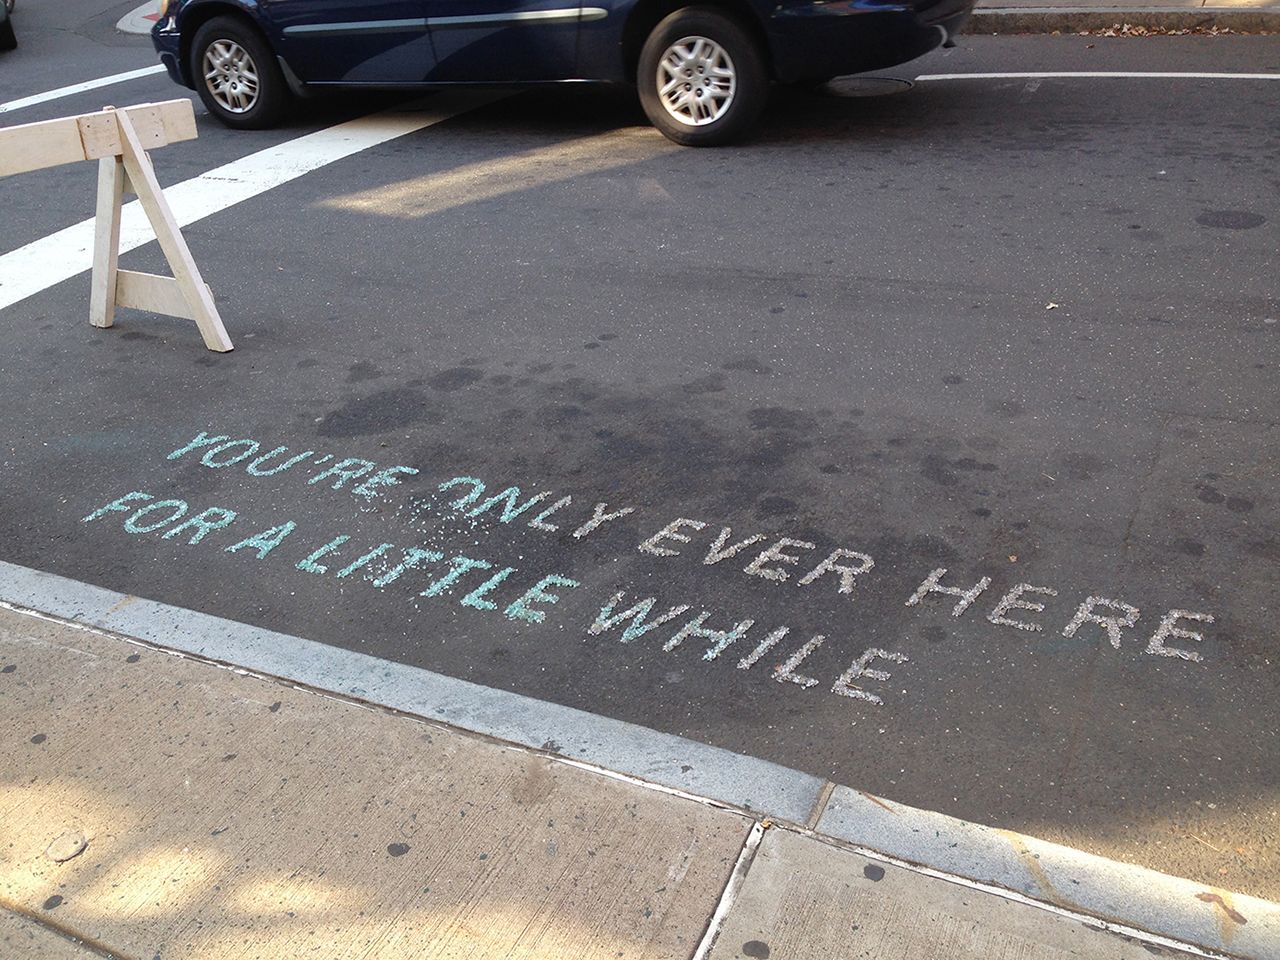 YOU'RE ONLY EVER HERE
FOR A LITTLE WHILE